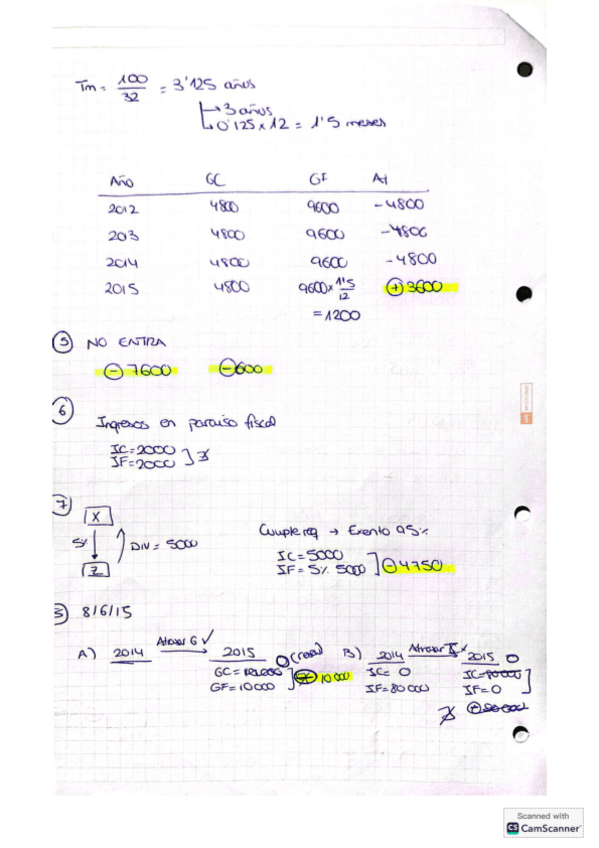 Tm = 100/32 = 3'125 años
↳ 3 años
↳ 0'125 x 12 = 1'5 meses
Año GC GF AJ
2012 4800 9600 -4800
2013 4800 9600 -4800
2014 4800 9600 -4800
2015 4800 9600 x 1'5/12 + 3600
= 1200
5 NO ENTRA
- 7600 - 600
6
Ingresos en paraiso fiscal
IC = 2000
IF = 2000
7
X
5% DIV = 5000
Z
Cumple req → Exento 95%
IC = 5000
IF = 5% 5000 - 4750
8/6/15
A) 2014 Atrasar G ✓ 2015
GC =
GF = 10 000 10 000
B) 2014 2015 0
IC = 0 IC = 80000
IF = 80 000 IF = 0
Scanned with
CS CamScanner